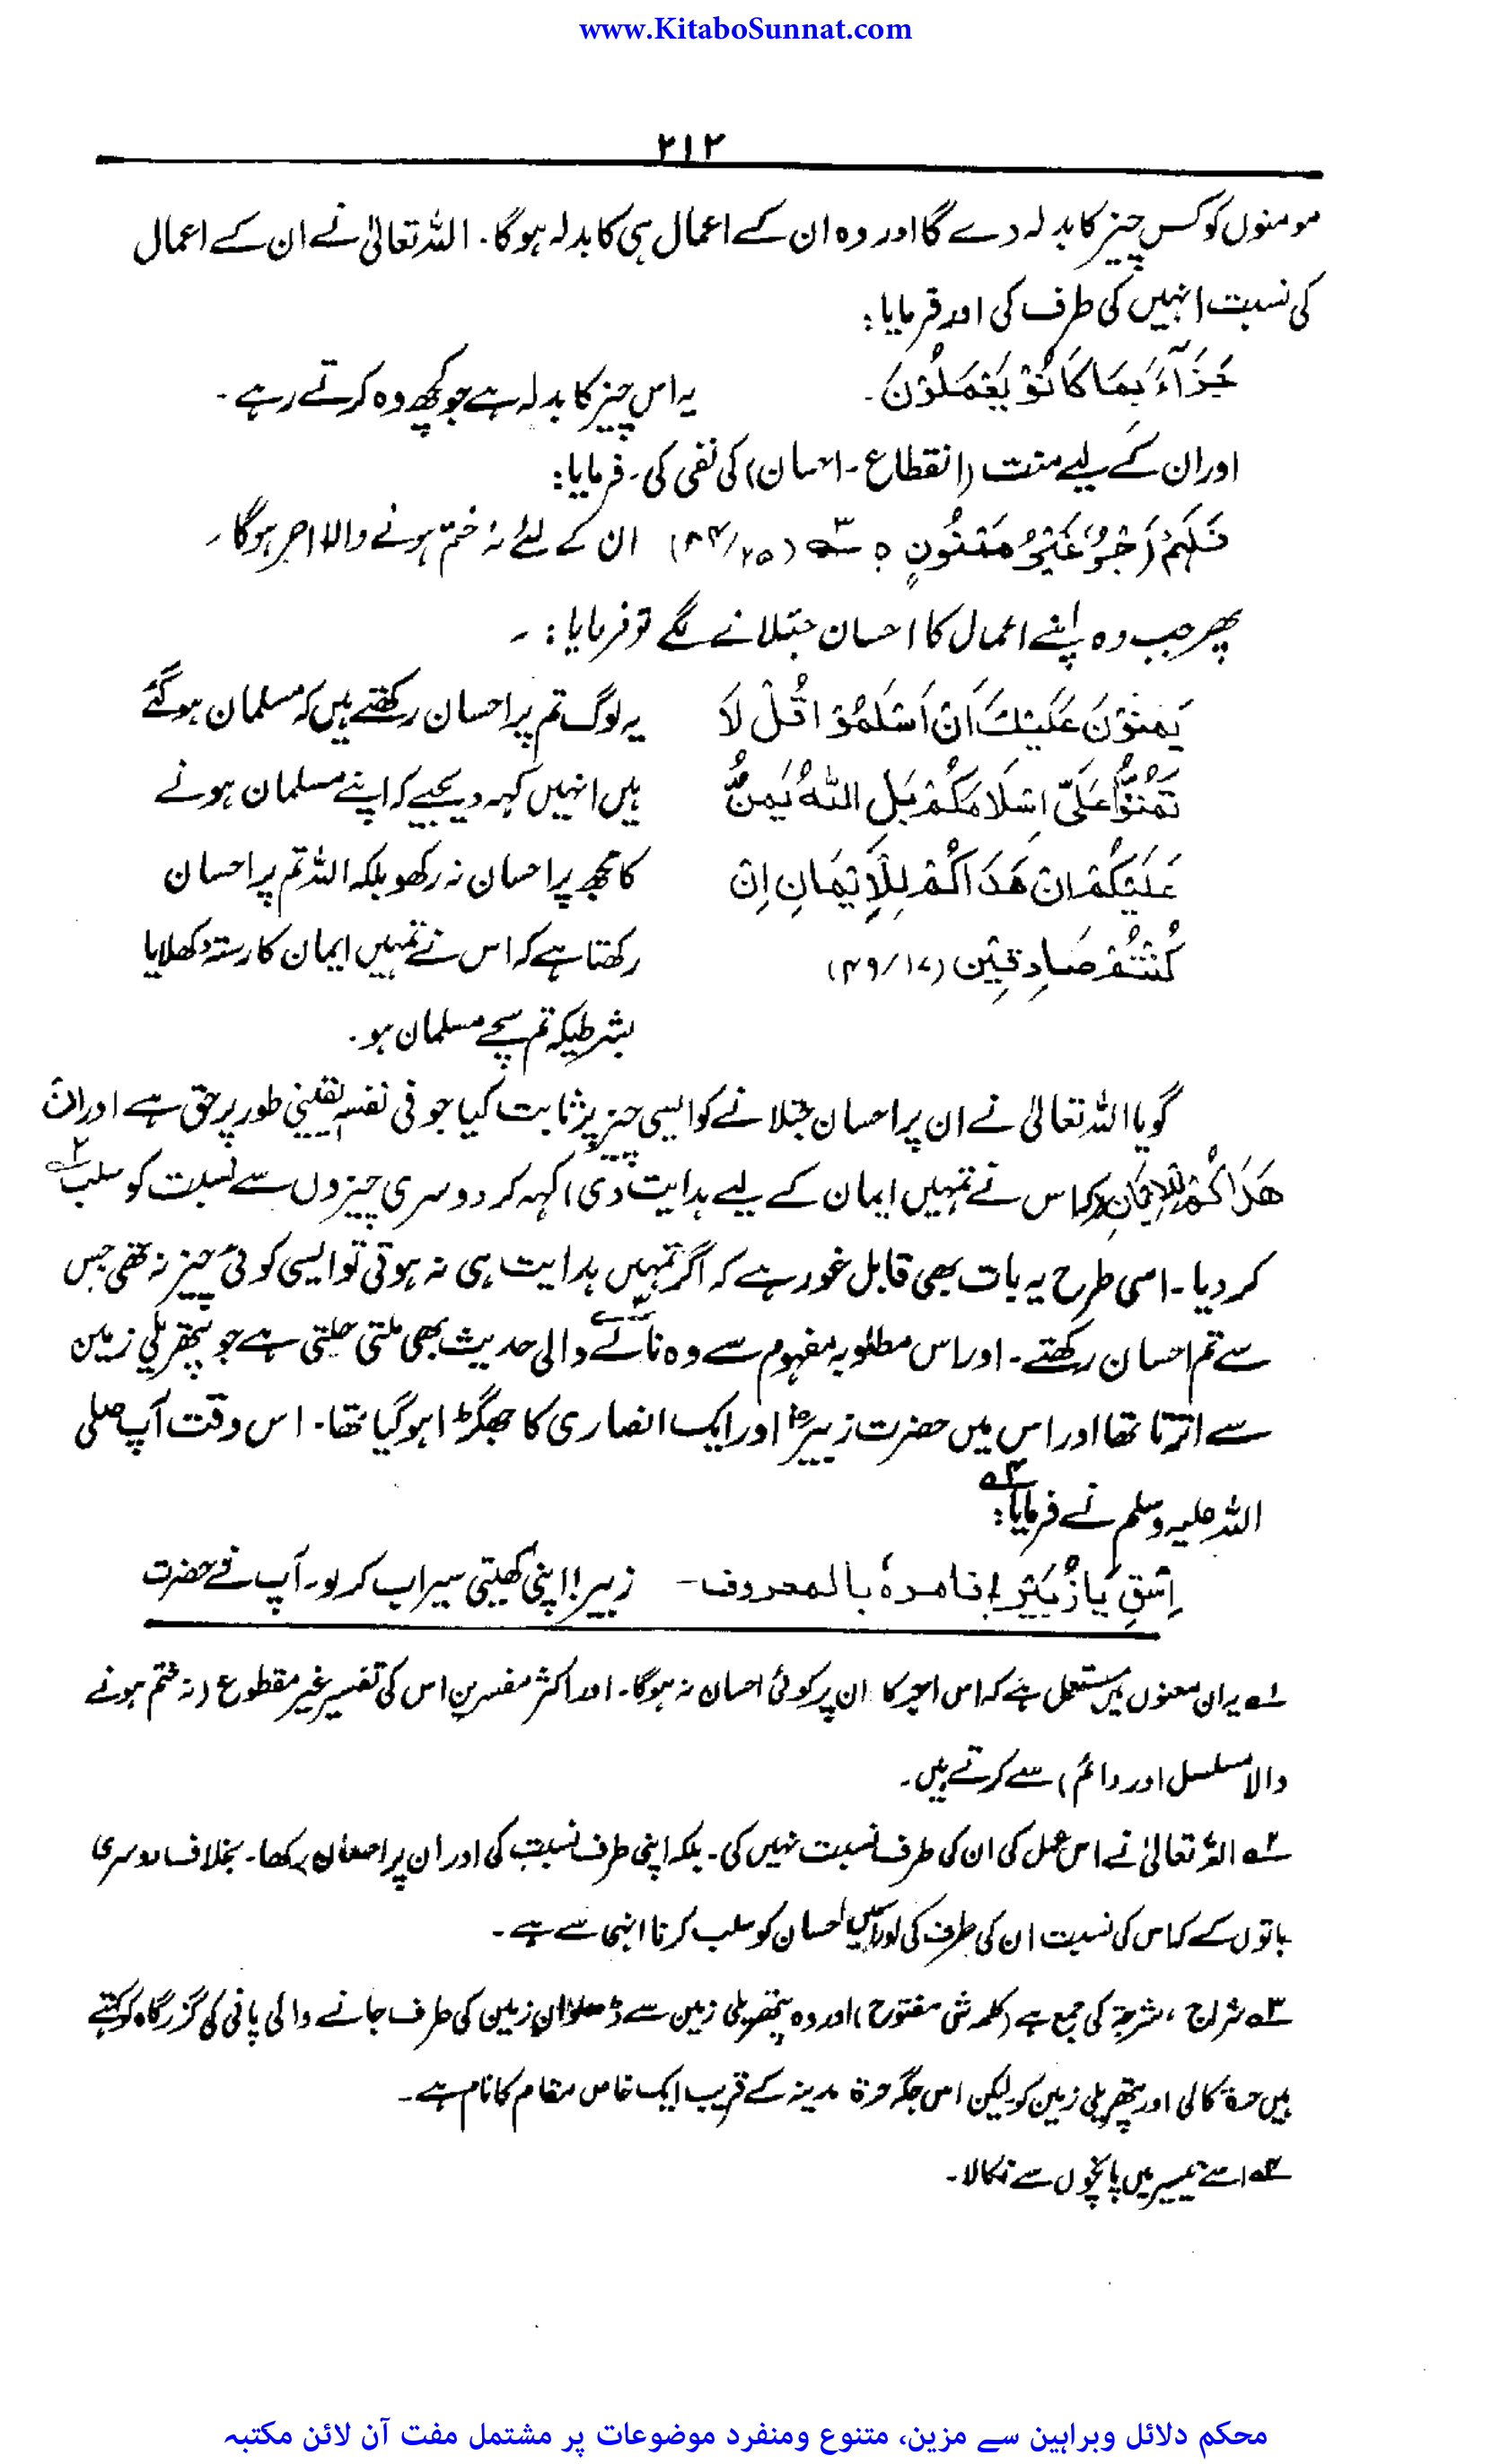 www.KitaboSunnat.com
۲۱۲
مومنوں کو کس چیز کا بدلہ دے گا اور وہ ان کے اعمال ہی کا بدلہ ہوگا۔ اللہ تعالیٰ نے ان کے اعمال
کی نسبت انہیں کی طرف کی اور فرمایا:
جَزَآءً بِمَا كَانُوْ يَعْمَلُوْنَ۔ یہ اس چیز کا بدلہ ہے جو کچھ وہ کرتے رہے۔
اور ان کے لیے منت (انقطاع۔احسان) کی نفی کی۔ فرمایا:
فَلَهُمْ اَجْرٌ غَيْرُ مَمْنُونٍ ہ (۲۵/۸۴) ان کے لئے نہ ختم ہونے والا اجر ہوگا۔
پھر جب وہ اپنے اعمال کا احسان جتلانے لگے تو فرمایا:۔
يَمُنُّوْنَ عَلَيْكَ اَنْ اَسْلَمُوْا قُلْ لَا یہ لوگ تم پر احسان رکھتے ہیں کہ مسلمان ہوگئے
تَمُنُّوْا عَلَىَّ اِسْلَامَكُمْ بَلِ اللهُ يَمُنُّ ہیں انہیں کہہ دیجیے کہ اپنے مسلمان ہونے
عَلَيْكُمْ اَنْ هَدَاكُمْ لِلْاِيْمَانِ اِنْ کا مجھ پر احسان نہ رکھو بلکہ اللہ تم پر احسان
كُنْتُمْ صَادِقِيْنَ (۴۹/۱۷) رکھتا ہے کہ اس نے تمہیں ایمان کا رستہ دکھلایا
بشرطیکہ تم سچے مسلمان ہو۔
گویا اللہ تعالیٰ نے ان پر احسان جتلانے کو ایسی چیز پر ثابت کیا جو فی نفسہٖ یقینی طور پر حق ہے اور اَنْ
هَدَاكُمْ لِلْاِيمَانِ (کہ اس نے تمہیں ایمان کے لیے ہدایت دی) کہہ کر دوسری چیزوں سے نسبت کو سلب ۲؎
کر دیا۔ اسی طرح یہ بات بھی قابل غور ہے کہ اگر تمہیں ہدایت ہی نہ ہوتی تو ایسی کوئی چیز نہ تھی جس
سے تم احسان رکھتے۔ اور اس مطلوبہ مفہوم سے وہ نالے ۳؎ والی حدیث بھی ملتی جلتی ہے جو پتھریلی زمین
سے اترتا تھا اور اس میں حضرت زبیرؓ اور ایک انصاری کا جھگڑا ہوگیا تھا۔ اس وقت آپ صلی
اللہ علیہ وسلم نے فرمایا ۴؎:
اِسْقِ يَا زُبَيْرُ! فامرهٗ بالمعروف۔ زبیر! اپنی کھیتی سیراب کر لو۔ آپ نے حضرت
۱؎ یہ ان معنوں میں مستعمل ہے کہ اس اجر کا ان پر کوئی احسان نہ ہوگا۔ اور اکثر مفسرین اس کی تفسیر غیر مقطوع (نہ ختم ہونے
والا مسلسل اور دائم) سے کرتے ہیں۔
۲؎ اللہ تعالیٰ نے اس عمل کی ان کی طرف نسبت نہیں کی۔ بلکہ اپنی طرف نسبت کی اور ان پر احسان رکھا۔ بخلاف دوسری
باتوں کے کہ اس کی نسبت ان کی طرف کی اور اس میں احسان کو سلب کرنا انہی سے ہے۔
۳؎ شراج، شرجۃ کی جمع ہے (کلمہ ش مفتوح) اور وہ پتھریلی زمین سے ڈھلوان زمین کی طرف جانے والی پانی کی گزرگاہ کو کہتے
ہیں حرۃ کالی اور پتھریلی زمین کو لیکن اس جگہ حرۃ مدینہ کے قریب ایک خاص مقام کا نام ہے۔
۴؎ اسے تیسیر میں پانچوں سے نکالا۔
محکم دلائل وبراہین سے مزین، متنوع ومنفرد موضوعات پر مشتمل مفت آن لائن مکتبہ